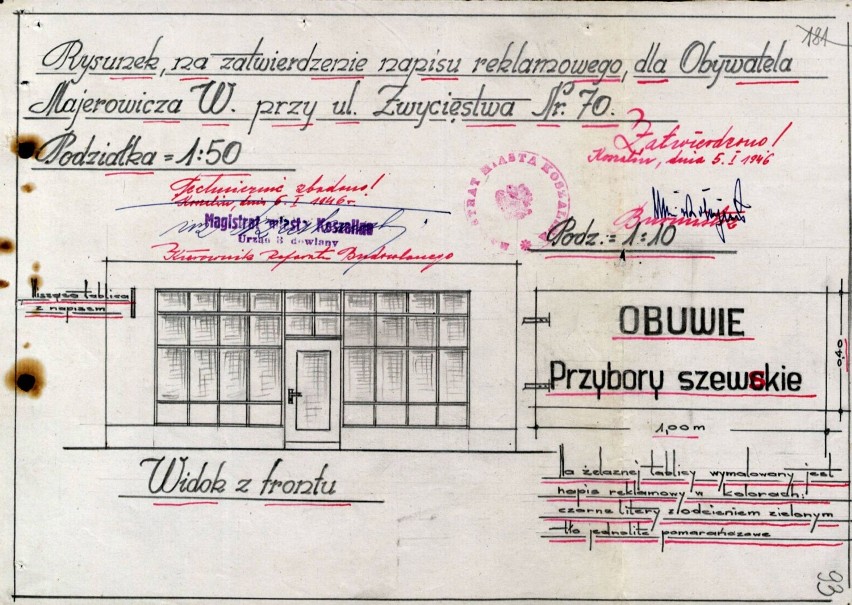 181
Rysunek, na zatwierdzenie napisu reklamowego, dla Obywatela
Majerowicza W. przy ul. Zwycięstwa Nr. 70.
Podziałka = 1:50
Zatwierdzono!
Koszalin, dnia 5. I 1946
Technicznie zbadano!
Koszalin, dnia 5. I 1946 r.
MAGISTRAT MIASTA KOSZALINA
Magistrat miasta Koszalina
Urząd B dowlany
Kierownik referatu Budowlanego
Burmistrz
Podz. = 1:10
Wisząca tablica
z napisem
OBUWIE
Przybory szewskie
0,40
1,00 m
Widok z frontu
Na żelaznej tablicy wymalowany jest
napis reklamowy w kolorach;
czarne litery z odcieniem zielonym
tło jednolite pomarańczowe
93